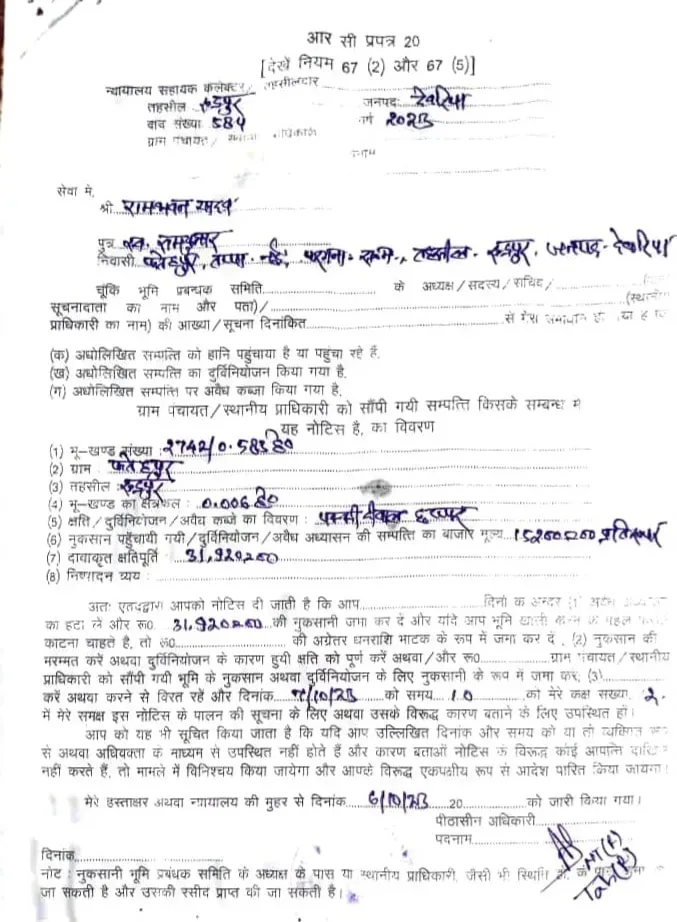 आर सी प्रपत्र 20
[देखें नियम 67 (2) और 67 (5)]
न्यायालय सहायक कलेक्टर/तहसीलदार
तहसील रुद्रपुर जनपद देवरिया
वाद संख्या 584 वर्ष 2023
ग्राम पंचायत/
सेवा मे,
श्री रामभवन यादव
पुत्र स्व. रामकुमार
निवासी फतेहपुर, तप्पा- परगना- तहसील- रुद्रपुर, जनपद- देवरिया
चूंकि भूमि प्रबन्धक समिति के अध्यक्ष/सदस्य/सचिव/
सूचनादाता का नाम और पता)/ (स्थानीय
प्राधिकारी का नाम) की आख्या/सूचना दिनांकित से
(क) अधोलिखित सम्पत्ति को हानि पहुंचाया है या पहुंचा रहे हैं,
(ख) अधोलिखित सम्पत्ति का दुर्विनियोजन किया गया है.
(ग) अधोलिखित सम्पत्ति पर अवैध कब्जा किया गया है,
ग्राम पंचायत/स्थानीय प्राधिकारी को सौंपी गयी सम्पत्ति जिसके सम्बन्ध में
यह नोटिस है, का विवरण
(1) भू-खण्ड संख्या 2742/0.583 हे0
(2) ग्राम : फतेहपुर
(3) तहसील : रुद्रपुर
(4) भू-खण्ड का क्षेत्रफल : 0.006 हे0
(5) क्षति/दुर्विनियोजन/अवैध कब्जे का विवरण : पक्की दीवाल छप्पर
(6) नुकसान पहुँचायी गयी/दुर्विनियोजन/अवैध अध्यासन की सम्पत्ति का बाजार मूल्य
(7) दावाकृत क्षतिपूर्ति :
(8) निष्पादन व्यय :
अतः एतद्द्वारा आपको नोटिस दी जाती है कि आप दिनों के अन्दर (1)
का हटा लें और रू0 की नुकसानी जमा कर दें और यदि आप भूमि खाली करने के पहले फसल
काटना चाहते है, तो रू0 की अग्रेतर धनराशि भाटक के रूप में जमा कर दें , (2) नुकसान की
मरम्मत करें अथवा दुर्विनियोजन के कारण हुयी क्षति को पूर्ण करें अथवा/और रू0 ग्राम पंचायत/स्थानीय
प्राधिकारी को सौंपी गयी भूमि के नुकसान अथवा दुर्विनियोजन के लिए नुकसानी के रूप में जमा कर, (3)
करें अथवा करने से विरत रहें और दिनांक /10/23 को समय 10 को मेरे कक्ष संख्या 2
में मेरे समक्ष इस नोटिस के पालन की सूचना के लिए अथवा उसके विरूद्ध कारण बताने के लिए उपस्थित हों।
आप को यह भी सूचित किया जाता है कि यदि आप उल्लिखित दिनांक और समय को या तो व्यक्तिगत रूप
से अथवा अधिवक्ता के माध्यम से उपस्थित नहीं होते हैं और कारण बताओं नोटिस के विरूद्ध कोई आपत्ति दाखिल
नहीं करते हैं, तो मामले में विनिश्चय किया जायेगा और आपके विरूद्ध एकपक्षीय रूप से आदेश पारित किया जायेगा।
मेरे हस्ताक्षर अथवा न्यायालय की मुहर से दिनांक 6/10/23 20 को जारी किया गया।
पीठासीन अधिकारी
पदनाम
दिनांक
नोट : नुकसानी भूमि प्रबंधक समिति के अध्यक्ष के पास या स्थानीय प्राधिकारी, जैसी भी स्थिति हो, के
जा सकती है और उसकी रसीद प्राप्त की जा सकती है।